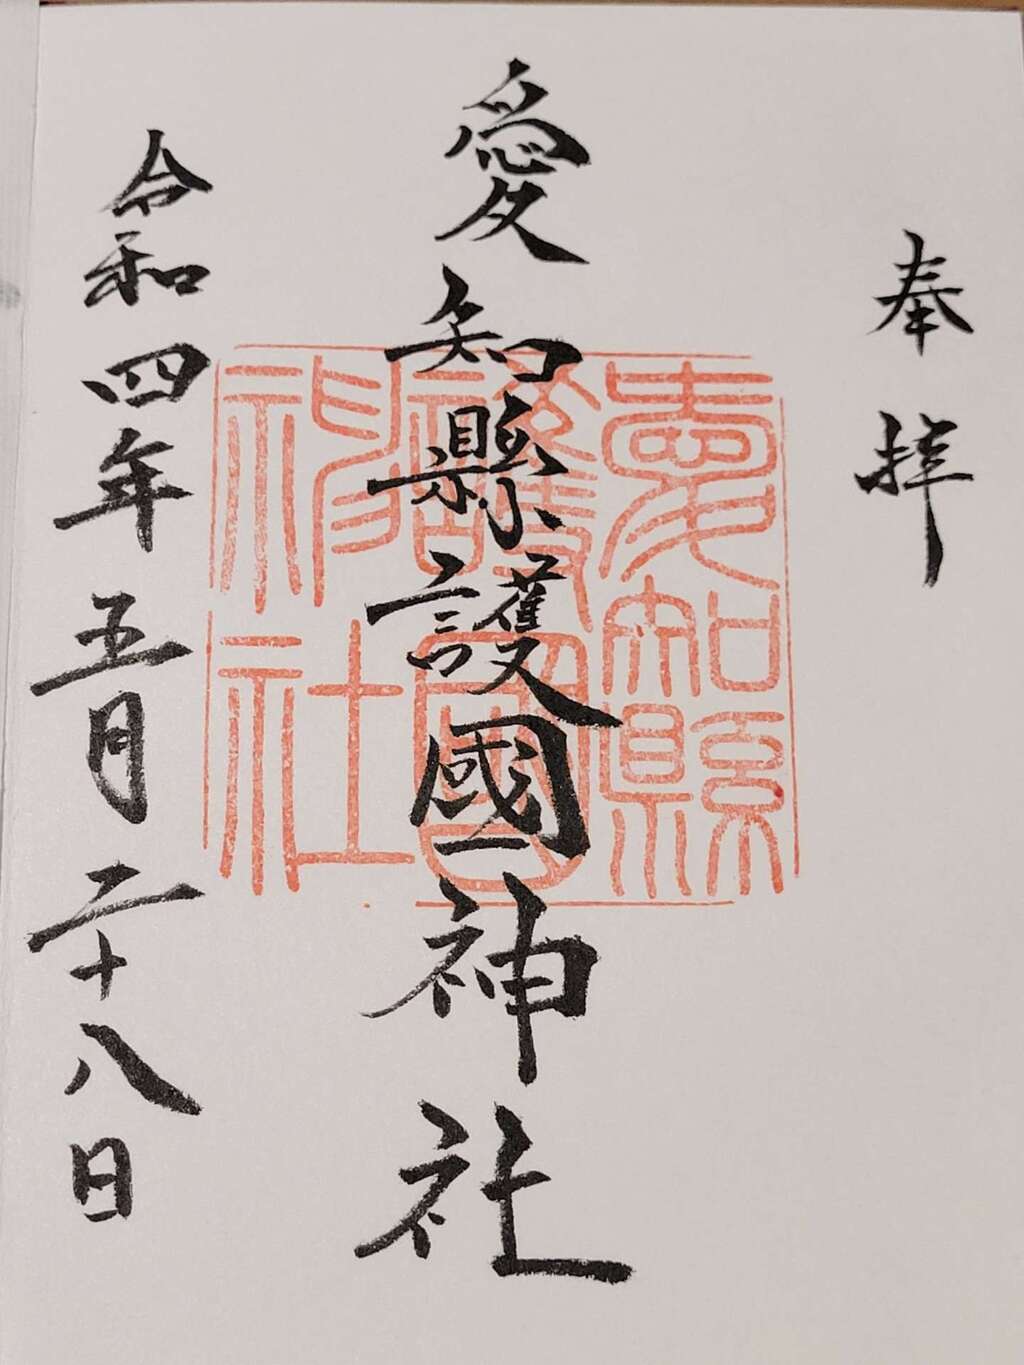 奉拝
愛知縣護國神社
令和四年五月二十八日
愛知縣
護國
神社